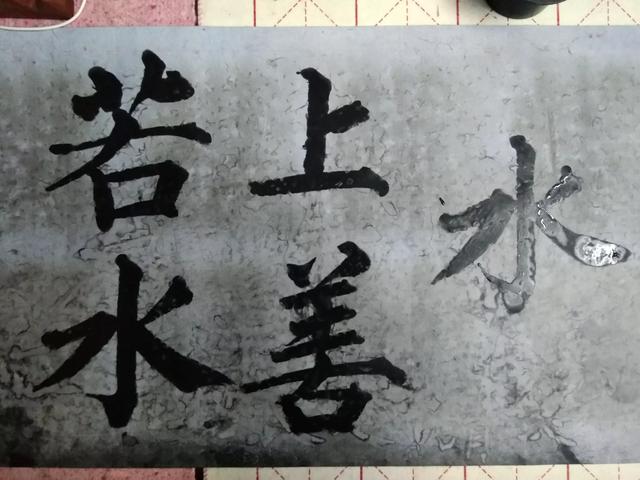 水
上善
若水